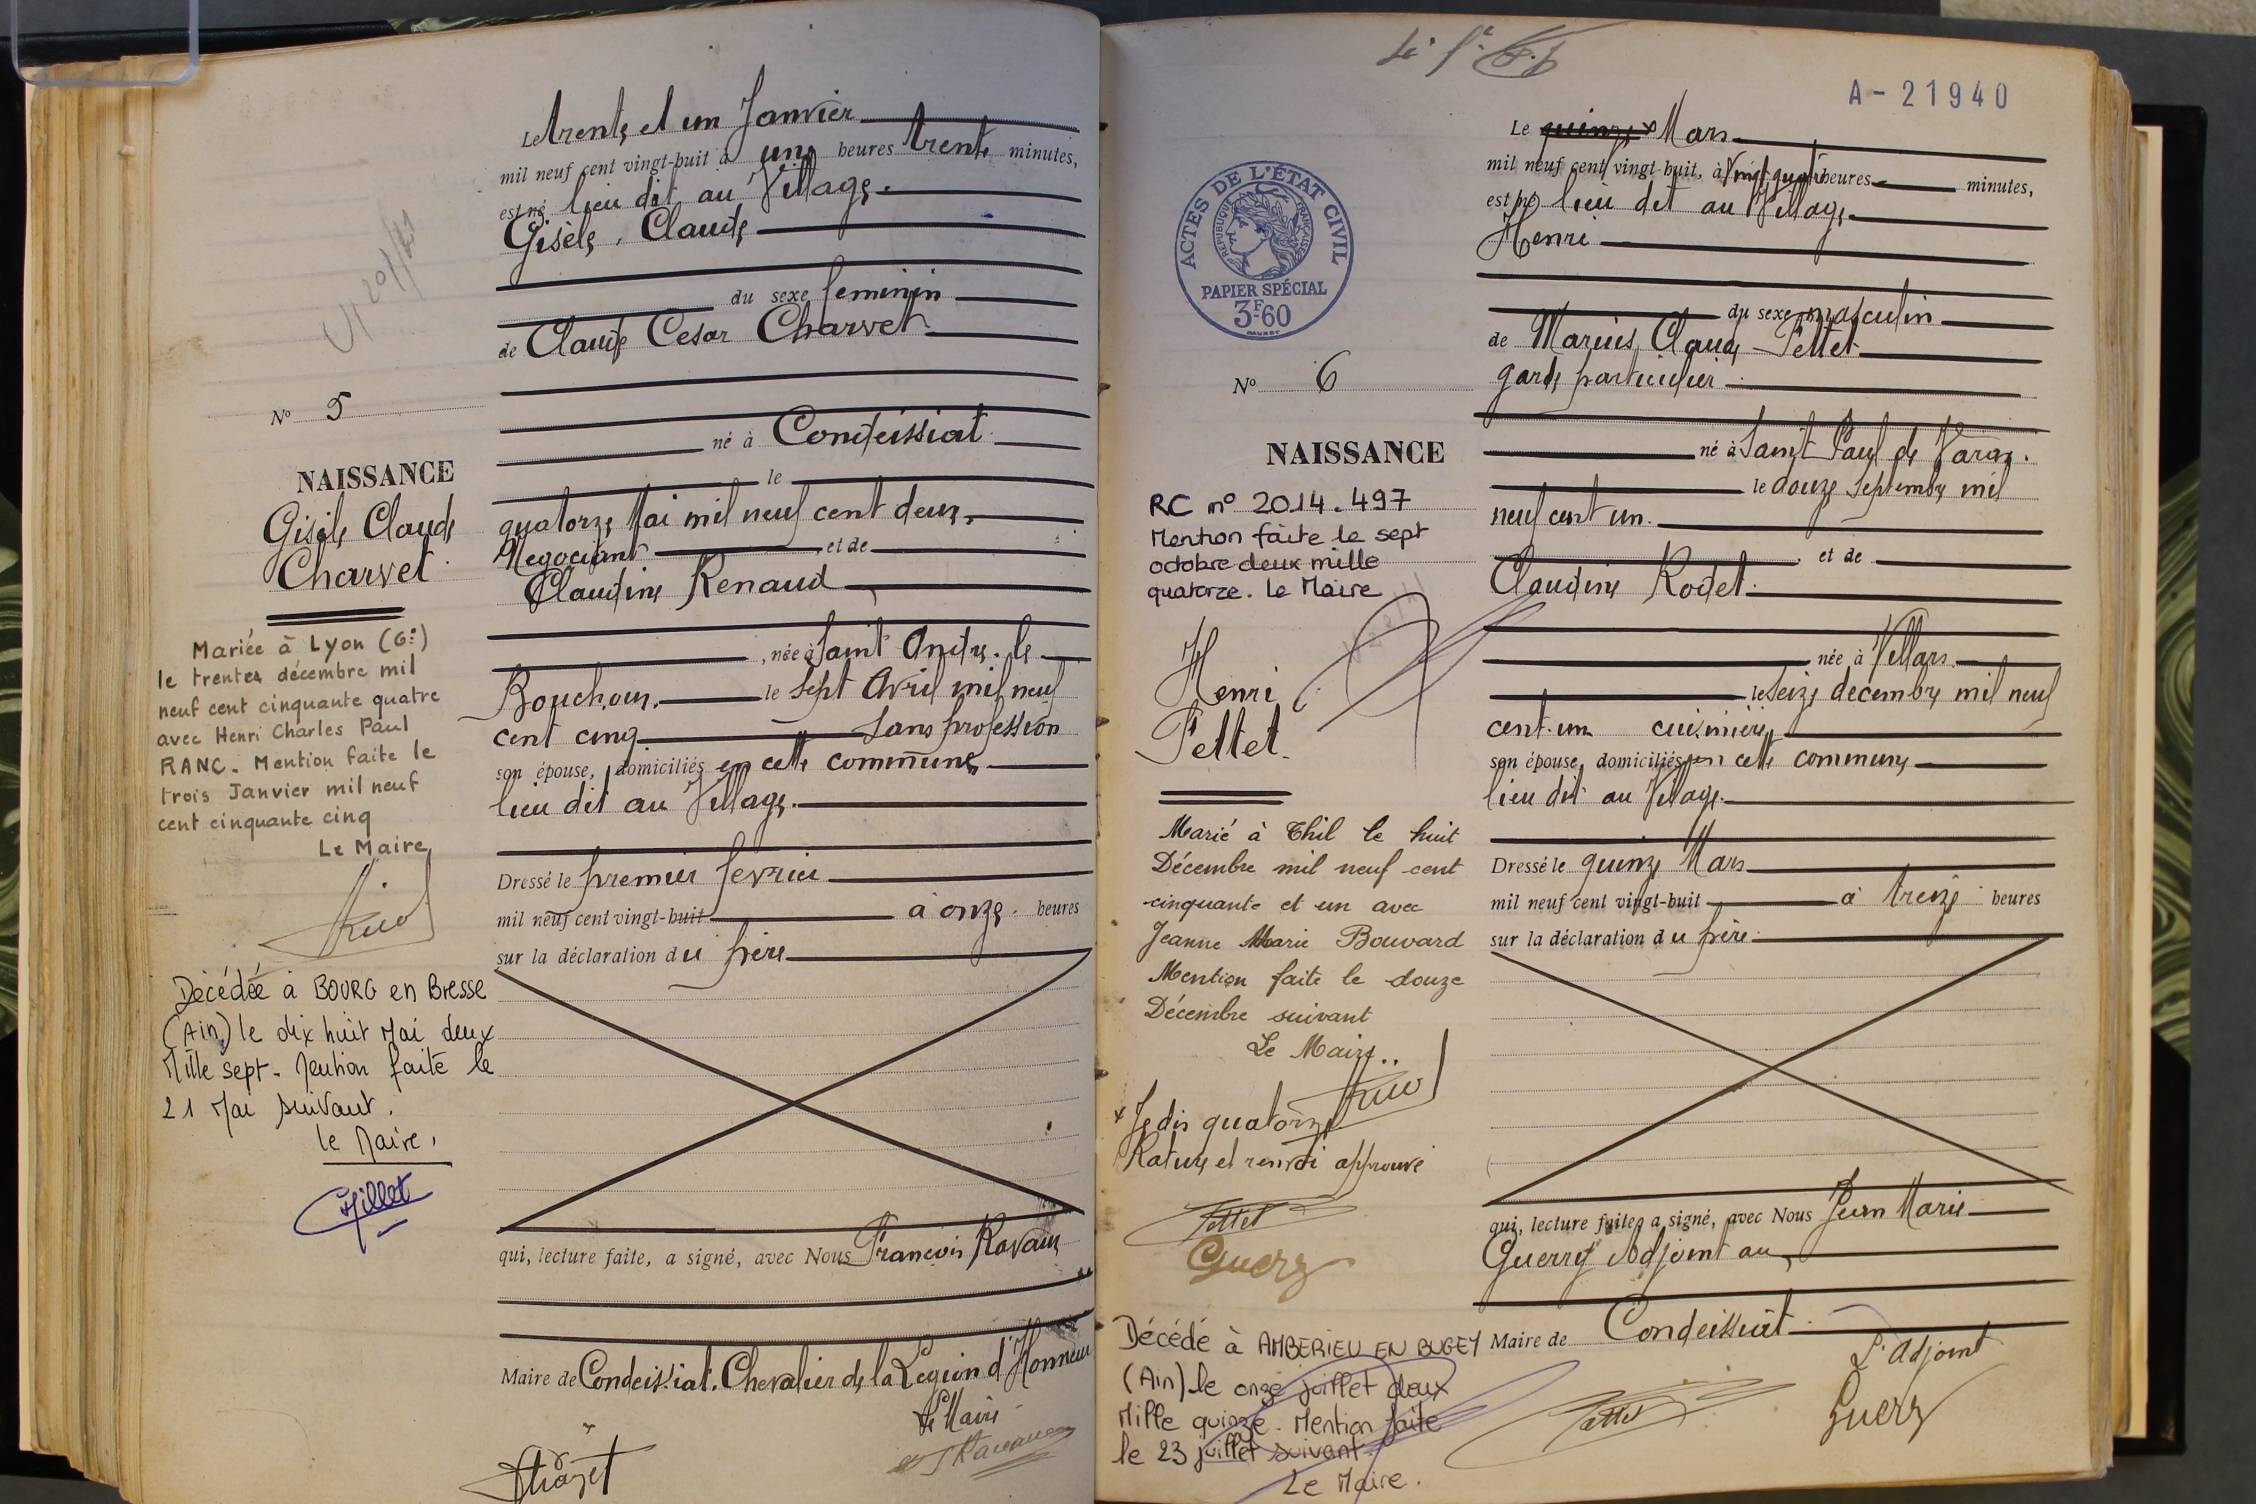 Le trente et un Janvier
mil neuf cent vingt-huit à une heures trente minutes,
est né lieu dit au Village.
Gisèle, Claude
du sexe feminin
de Claude Cesar Charvet
né à Condeissiat
le
quatorze Mai mil neuf cent deux.
Negociant et de
Claudine Renaud
, née à Saint André. le
Bouchoux. le sept Avril mil neuf
cent cinq sans profession
son épouse, domiciliés en cette commune
lieu dit au Village.
Dressé le premier fevrier
mil neuf cent vingt-huit à onze heures
sur la déclaration du père
qui, lecture faite, a signé, avec Nous François Ravaux
Maire de Condeissiat. Chevalier de la Legion d'Honneur
Le Maire
No 5
NAISSANCE
Gisèle Claude
Charvet
Mariée à Lyon (6e)
le trente décembre mil
neuf cent cinquante quatre
avec Henri Charles Paul
RANC. Mention faite le
trois Janvier mil neuf
cent cinquante cinq
Le Maire
Décédée à BOURG en Bresse
(Ain) le dix huit Mai deux
Mille sept. Mention faite le
21 Mai suivant.
le Maire,
A-21940
Le quinze x Mars
mil neuf cent vingt-huit, à vingt quatre heures minutes,
est né lieu dit au Village
Henri
du sexe masculin
de Marius, Claude Pettet
garde particulier
né à Saint Paul de Varax.
le douze Septembre mil
neuf cent un.
et de
Claudine Rodet.
née à Villars
le seize decembre mil neuf
cent un cuisinière
son épouse, domiciliés en cette commune
lieu dit au Village.
Dressé le quinze Mars
mil neuf cent vingt-huit à treize heures
sur la déclaration du père
qui, lecture faite, a signé, avec Nous Jean Marie
Guerry Adjoint au
Maire de Condeissiat
L'Adjoint
Guerry
Pettet
ACTES DE L'ÉTAT CIVIL
RÉPUBLIQUE FRANÇAISE
PAPIER SPÉCIAL
3F60
No 6
NAISSANCE
RC no 2014.497
Mention faite le sept
octobre deux mille
quatorze. Le Maire
Henri
Pettet
Marié à Thil le huit
Décembre mil neuf cent
cinquante et un avec
Jeanne Marie Bouvard
Mention faite le douze
Décembre suivant
Le Maire..
x Je dis quatorze
Rature et renvoi approuvé
Pettet
Guerry
Décédé à AMBERIEU EN BUGEY
(Ain) le onze juillet deux
Mille quinze. Mention faite
le 23 juillet suivant.
Le Maire.